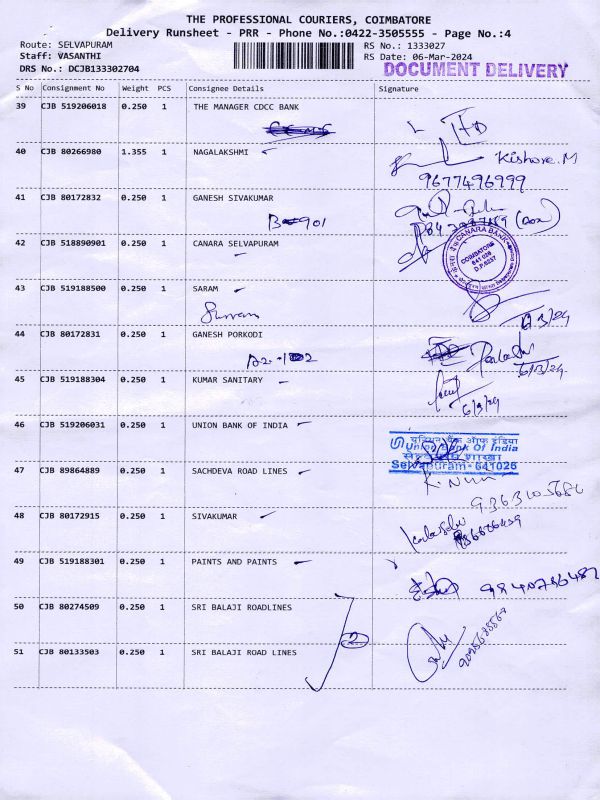 THE PROFESSIONAL COURIERS, COIMBATORE
Delivery Runsheet - PRR - Phone No.:0422-3505555 - Page No.:4
Route: SELVAPURAM RS No.: 1333027
Staff: VASANTHI RS Date: 06-Mar-2024
DRS No.: DCJB133302704 DOCUMENT DELIVERY
S No Consignment No Weight PCS Consignee Details Signature
39 CJB 519206018 0.250 1 THE MANAGER CDCC BANK
40 CJB 80266980 1.355 1 NAGALAKSHMI Kishore.M
9677496999
41 CJB 80172832 0.250 1 GANESH SIVAKUMAR
42 CJB 518890901 0.250 1 CANARA SELVAPURAM
CANARA BANK
COIMBATORE
641 026
43 CJB 519188500 0.250 1 SARAM
44 CJB 80172831 0.250 1 GANESH PORKODI
6/3/24
45 CJB 519188304 0.250 1 KUMAR SANITARY
6/3/24
46 CJB 519206031 0.250 1 UNION BANK OF INDIA
यूनियन बैंक ऑफ इंडिया
Union Bank Of India
Selvapuram - 641026
47 CJB 89864889 0.250 1 SACHDEVA ROAD LINES
48 CJB 80172915 0.250 1 SIVAKUMAR
49 CJB 519188301 0.250 1 PAINTS AND PAINTS
50 CJB 80274509 0.250 1 SRI BALAJI ROADLINES
2
51 CJB 80133503 0.250 1 SRI BALAJI ROAD LINES